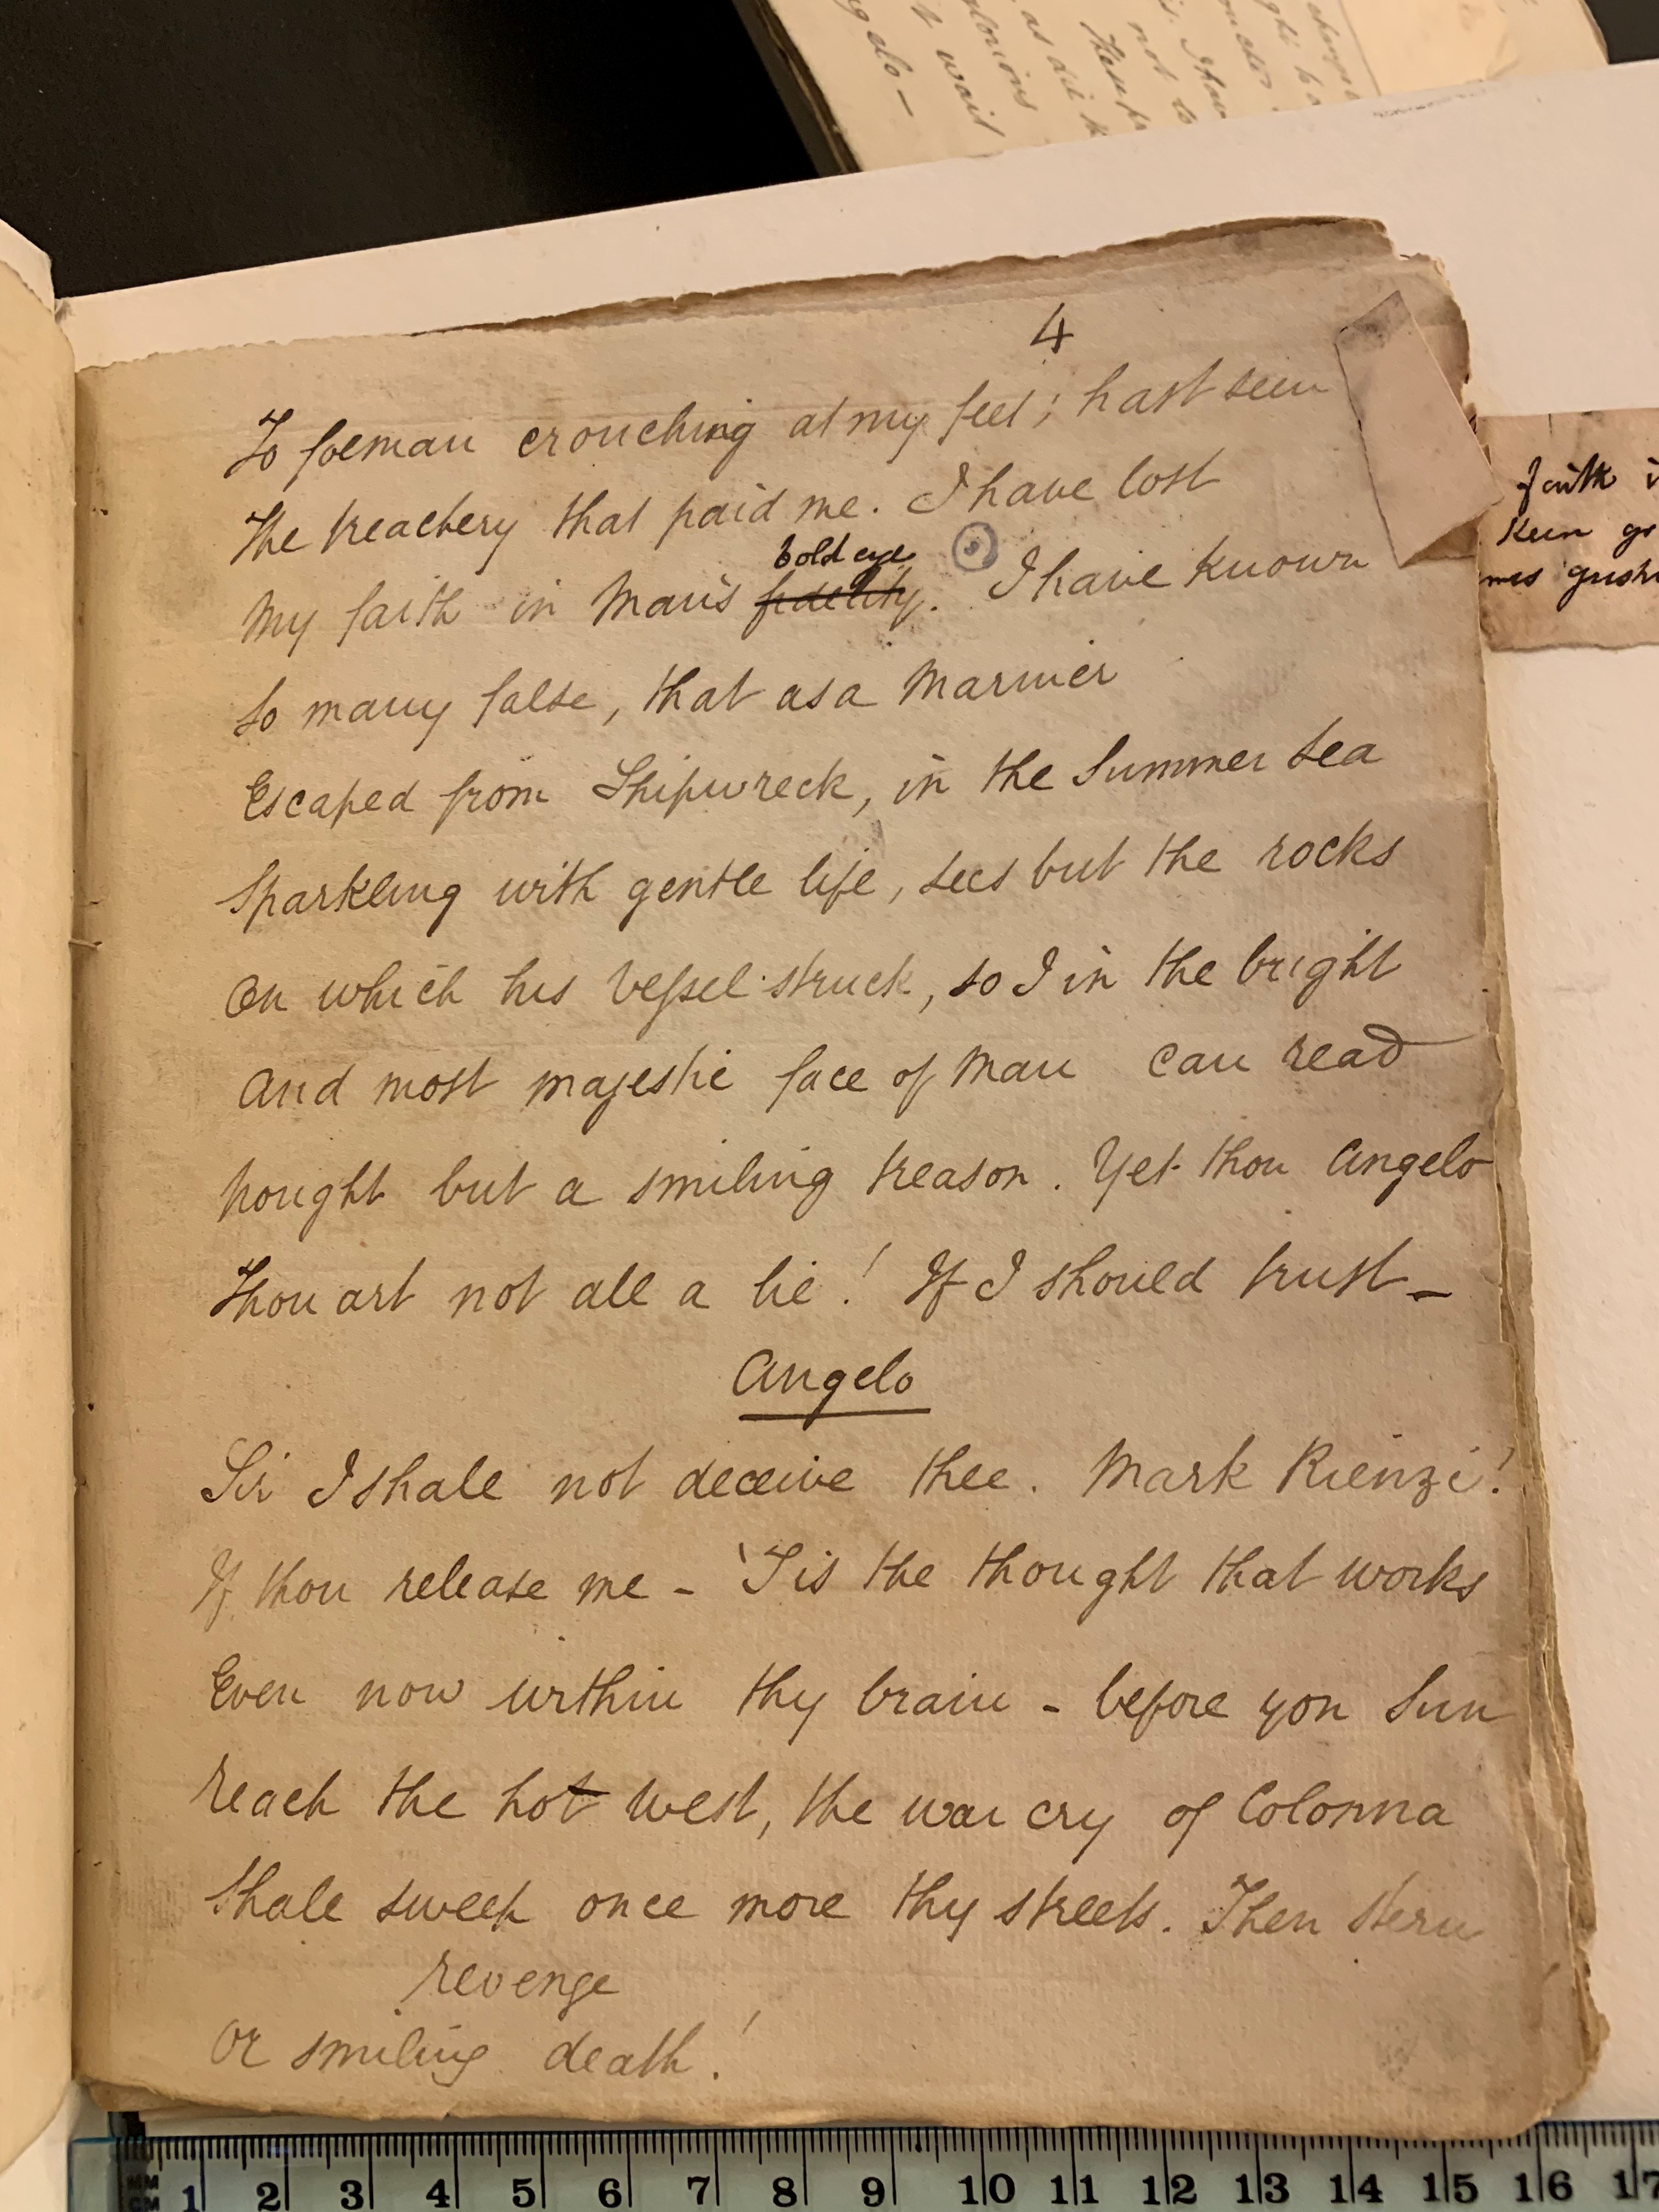 4
To foeman crouching at my feet; hast seen
The treachery that paid me. I have lost
bold eye
My faith in Man's fidelity. I have known
So many false, that as a Mariner
Escaped from Shipwreck, in the Summer Sea
Sparkling with gentle life, sees but the rocks
On which his Vessel struck, so I in the bright
And most majestic face of Man can read
Nought but a smiling treason. Yet thou Angelo
Thou art not all a lie! If I should trust –
Angelo
Sir I shall not deceive thee. Mark Rienzi!
If thou release me – 'Tis the thought that works
Even now within thy brain – before yon Sun
Reach the hot West, the war cry of Colonna
Shall sweep once more thy streets. Then stern
revenge
Or smiling death!
faith
Keen
gush
not to
as did
wait
MM
CM 1 2 3 4 5 6 7 8 9 10 11 12 13 14 15 16 17